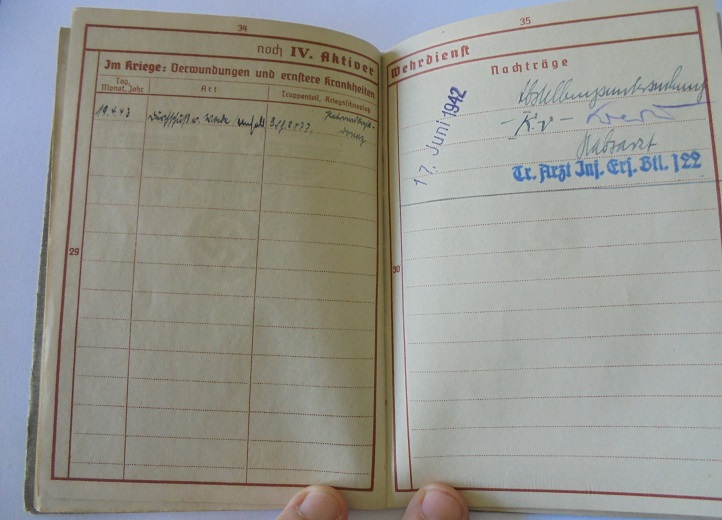 34
noch IV. Aktiver
Im Kriege: Verwundungen und ernstere Krankheiten
Tag, Monat, Jahr
Art
Truppenteil, Kriegsschauplatz
19.4.43
29
35
Wehrdienst
Nachträge
17. Juni 1942
Abstellungsuntersuchung
- K.v -
Stabsarzt
Tr. Arzt Inf. Ers. Btl. 122
30